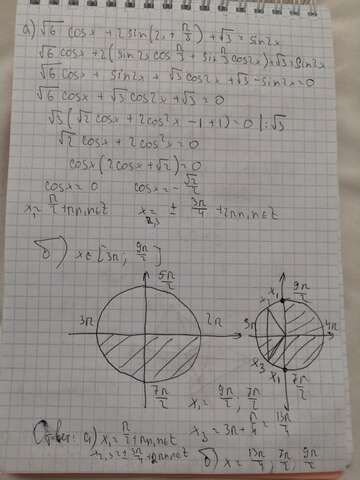 а) √6 cosx + 2sin(2x + π/3) + √3 = sin2x
√6 cosx + 2(sin2x cos π/3 + sin π/3 cos2x) + √3 = sin2x
√6 cosx + sin2x + √3 cos2x + √3 - sin2x = 0
√6 cosx + √3 cos2x + √3 = 0
√3(√2 cosx + 2cos²x - 1 + 1) = 0 |:√3
√2 cosx + 2cos²x = 0
cosx(2cosx + √2) = 0
cosx = 0 cosx = -√2/2
x₁ = π/2 + πn, n∈Z x₂,₃ = ± 3π/4 + 2πn, n∈Z
б) x ∈ [3π; 9π/2]
5π/2
3π 2π
7π/2
x₁ 9π/2
3π 4π
x₃ x₁ 7π/2
x₁ = 9π/2, 7π/2
x₃ = 3π + π/4 = 13π/4
Ответ: а) x₁ = π/2 + πn, n∈Z
x₂,₃ = ± 3π/4 + 2πn, n∈Z
б) x = 13π/4, 7π/2, 9π/2